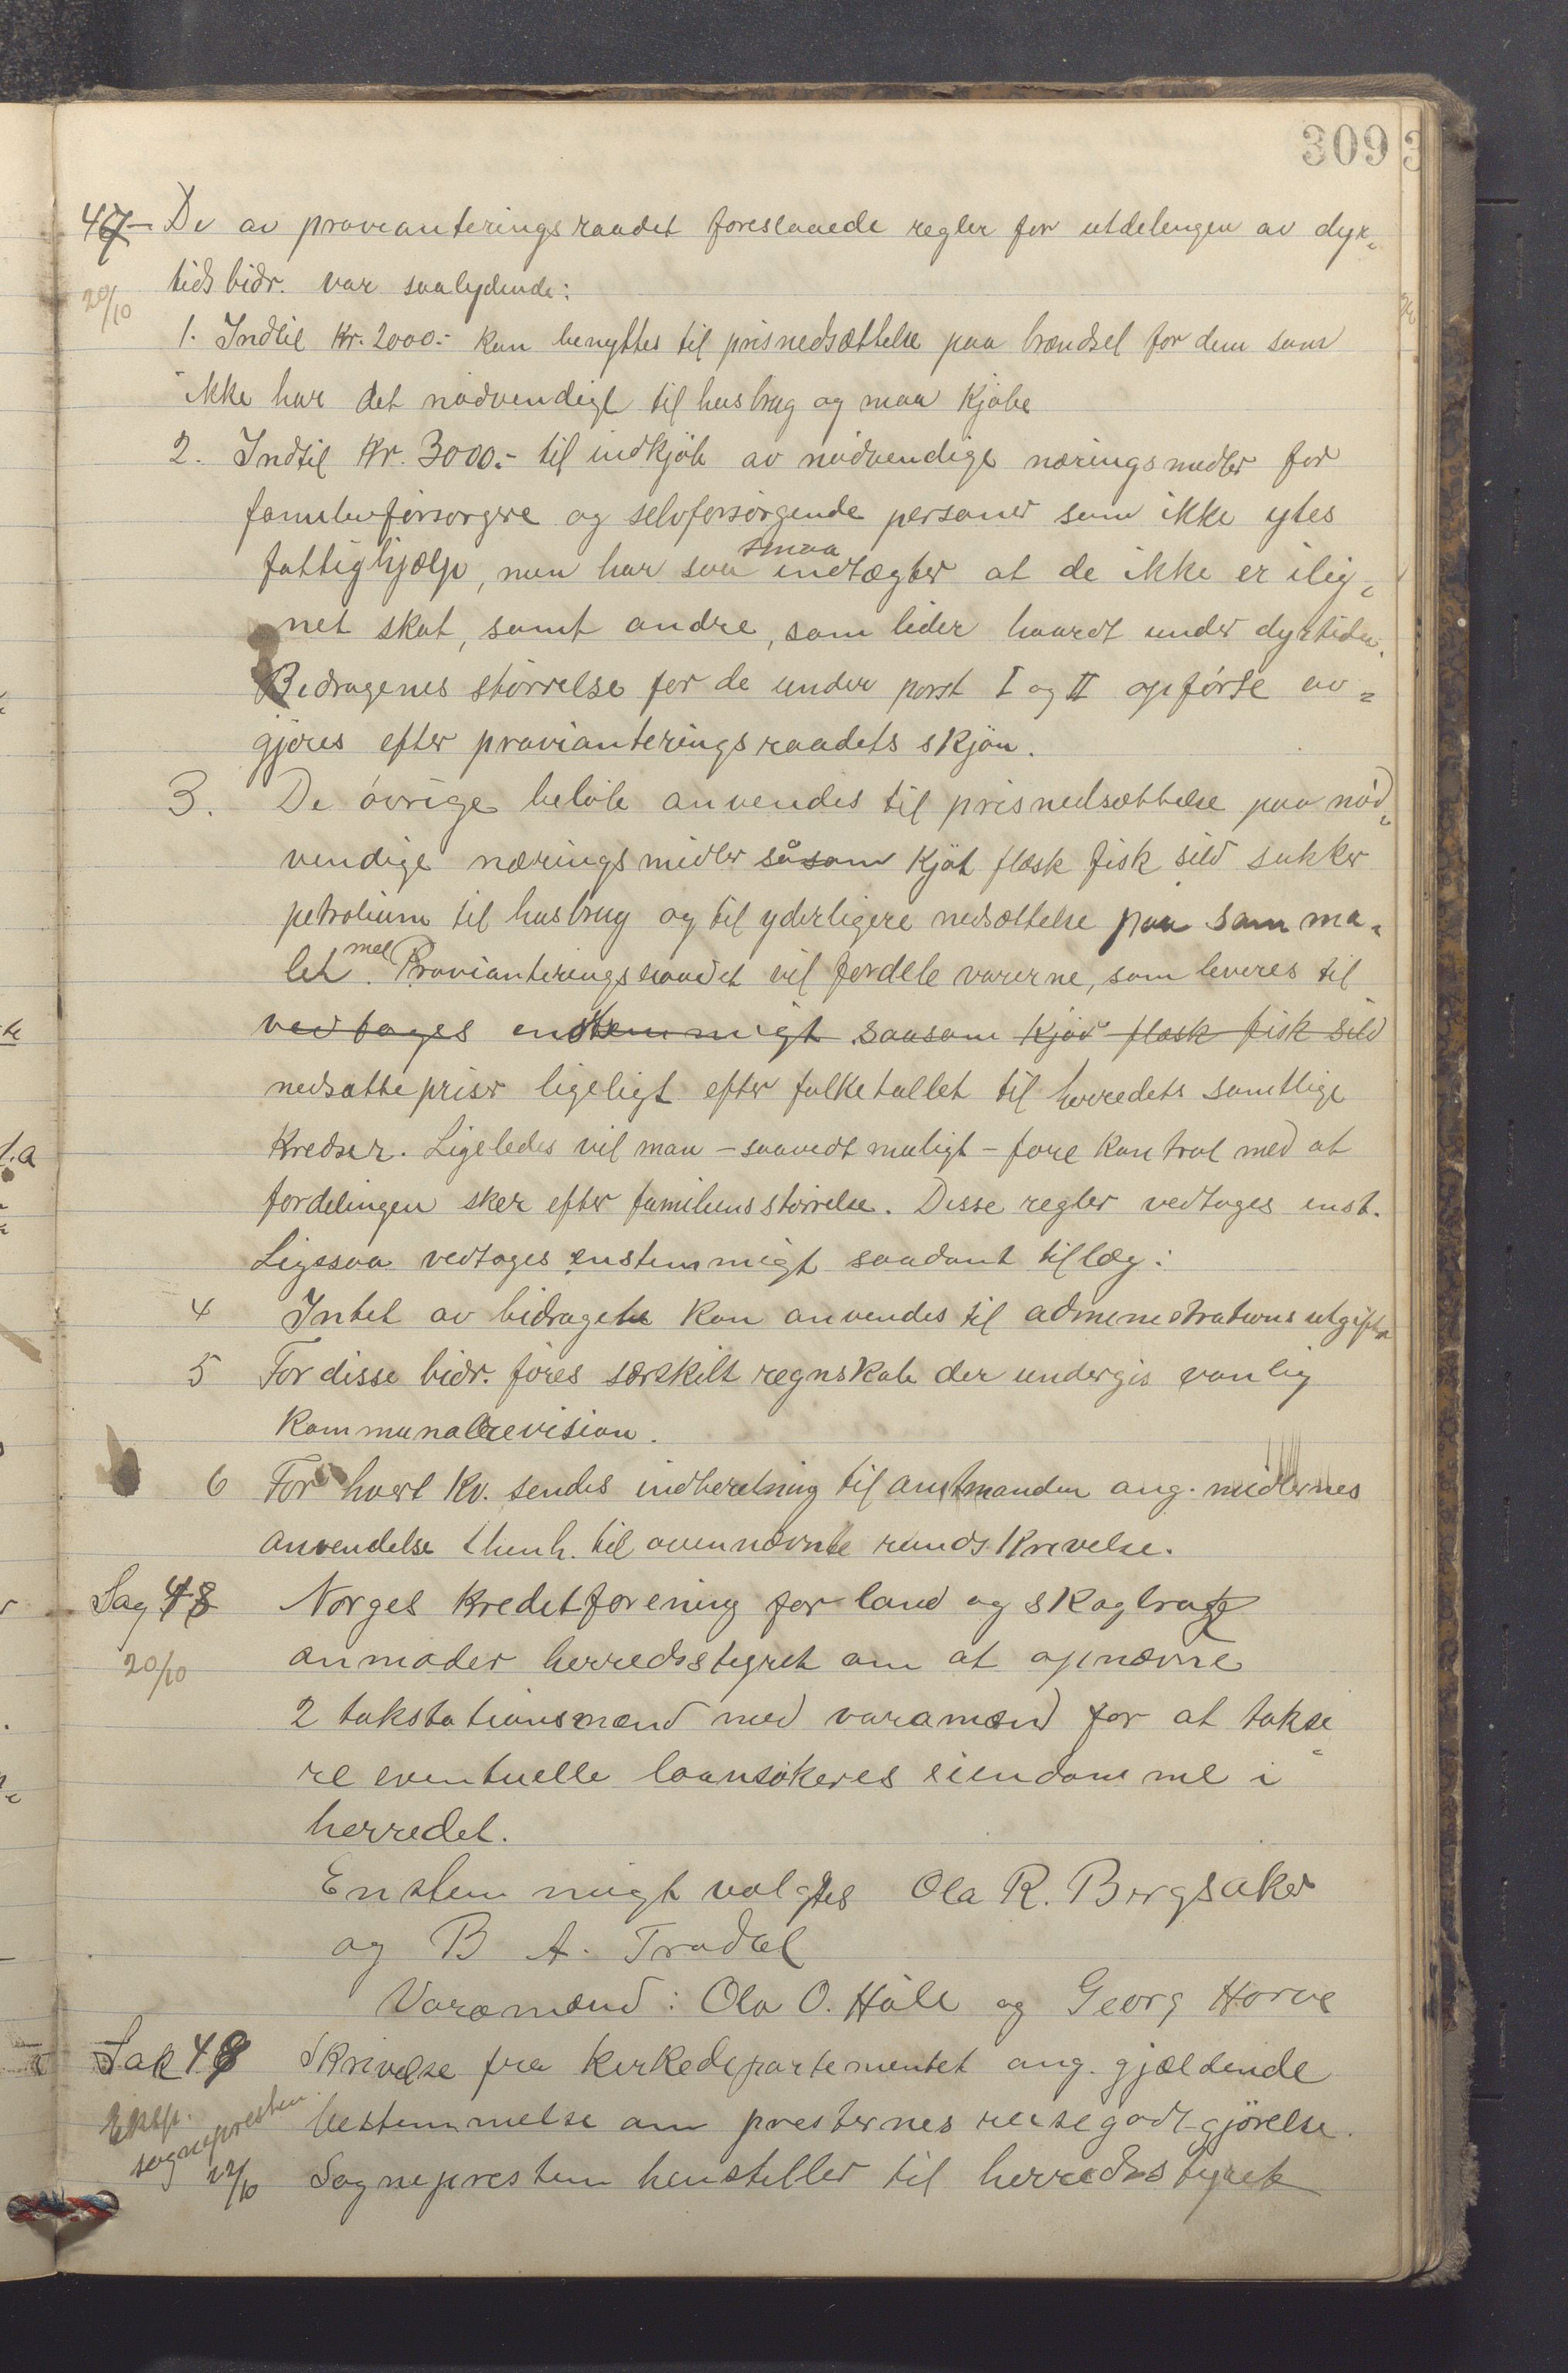 309
47- De av provianteringsraadet foreslaaede regler for utdelingen av dyr=
tids bidr. var saalydende:
20/10
1. Indtil Kr. 2000.- kan benyttes til prisnedsættelse paa brændsel for dem som
ikke har det nødvendige til husbrug og maa kjøbe
2. Indtil Kr. 3000.- til indkjøb av nødvendige næringsmidler for
familieforsørgere og selvforsørgende personer som ikke ytes
fattighjælp, men har saa smaa indtægter at de ikke er ilig=
net skat, samt andre, som lider haardt under dyrtiden.
Bidragenes størrelse for de under post I og II opførte av=
gjøres efter provianteringsraadets skjøn.
3. De øvrige beløb anvendes til prisnedsættelse paa nød=
vendige næringsmidler såsom kjøt flæsk fisk sild sukker
petrolium til husbrug og til yderligere nedsættelse paa sam ma=
let mel. Provianteringsraadet vil fordele varerne, som leveres til
vedtages enstemmigt saasom kjød flæsk fisk sild
nedsatte priser ligeligt efter folketallet til herredets samtlige
kredser. Ligeledes vil man - saavidt muligt - føre kontrol med at
fordelingen sker efter familiens størrelse. Disse regler vedtages enst.
Ligesaa vedtages enstemmigt saadant tillæg:
4 Intet av bidragene kan anvendes til administrations utgifter
5 For disse bidr. føres særskilt regnskab der undergis vanlig
kommunalrevision.
6 For hvert kv. sendes indberetning til amtmanden ang. midlernes
anvendelse i henh. til ovennævnte rundskrivelse.
Sag 48 Norges kreditforening for land og skogbrug
20/10
anmoder herredsstyret om at opnævne
2 takstationsmænd med varamænd for at takse=
re eventuelle laansøkeres eiendomme i
herredet.
Enstemmigt valgtes Ola R. Bergsaker
og B A. Tradal
Varamænd: Ola O. Håle og Georg Horve
Sak 49 Skrivelse fra kirkedepartementet ang. gjældende
Eksp. sognepresten
bestemmelse om presternes reisegodtgjørelse.
22/10
Sognepresten henstiller til herredsstyret